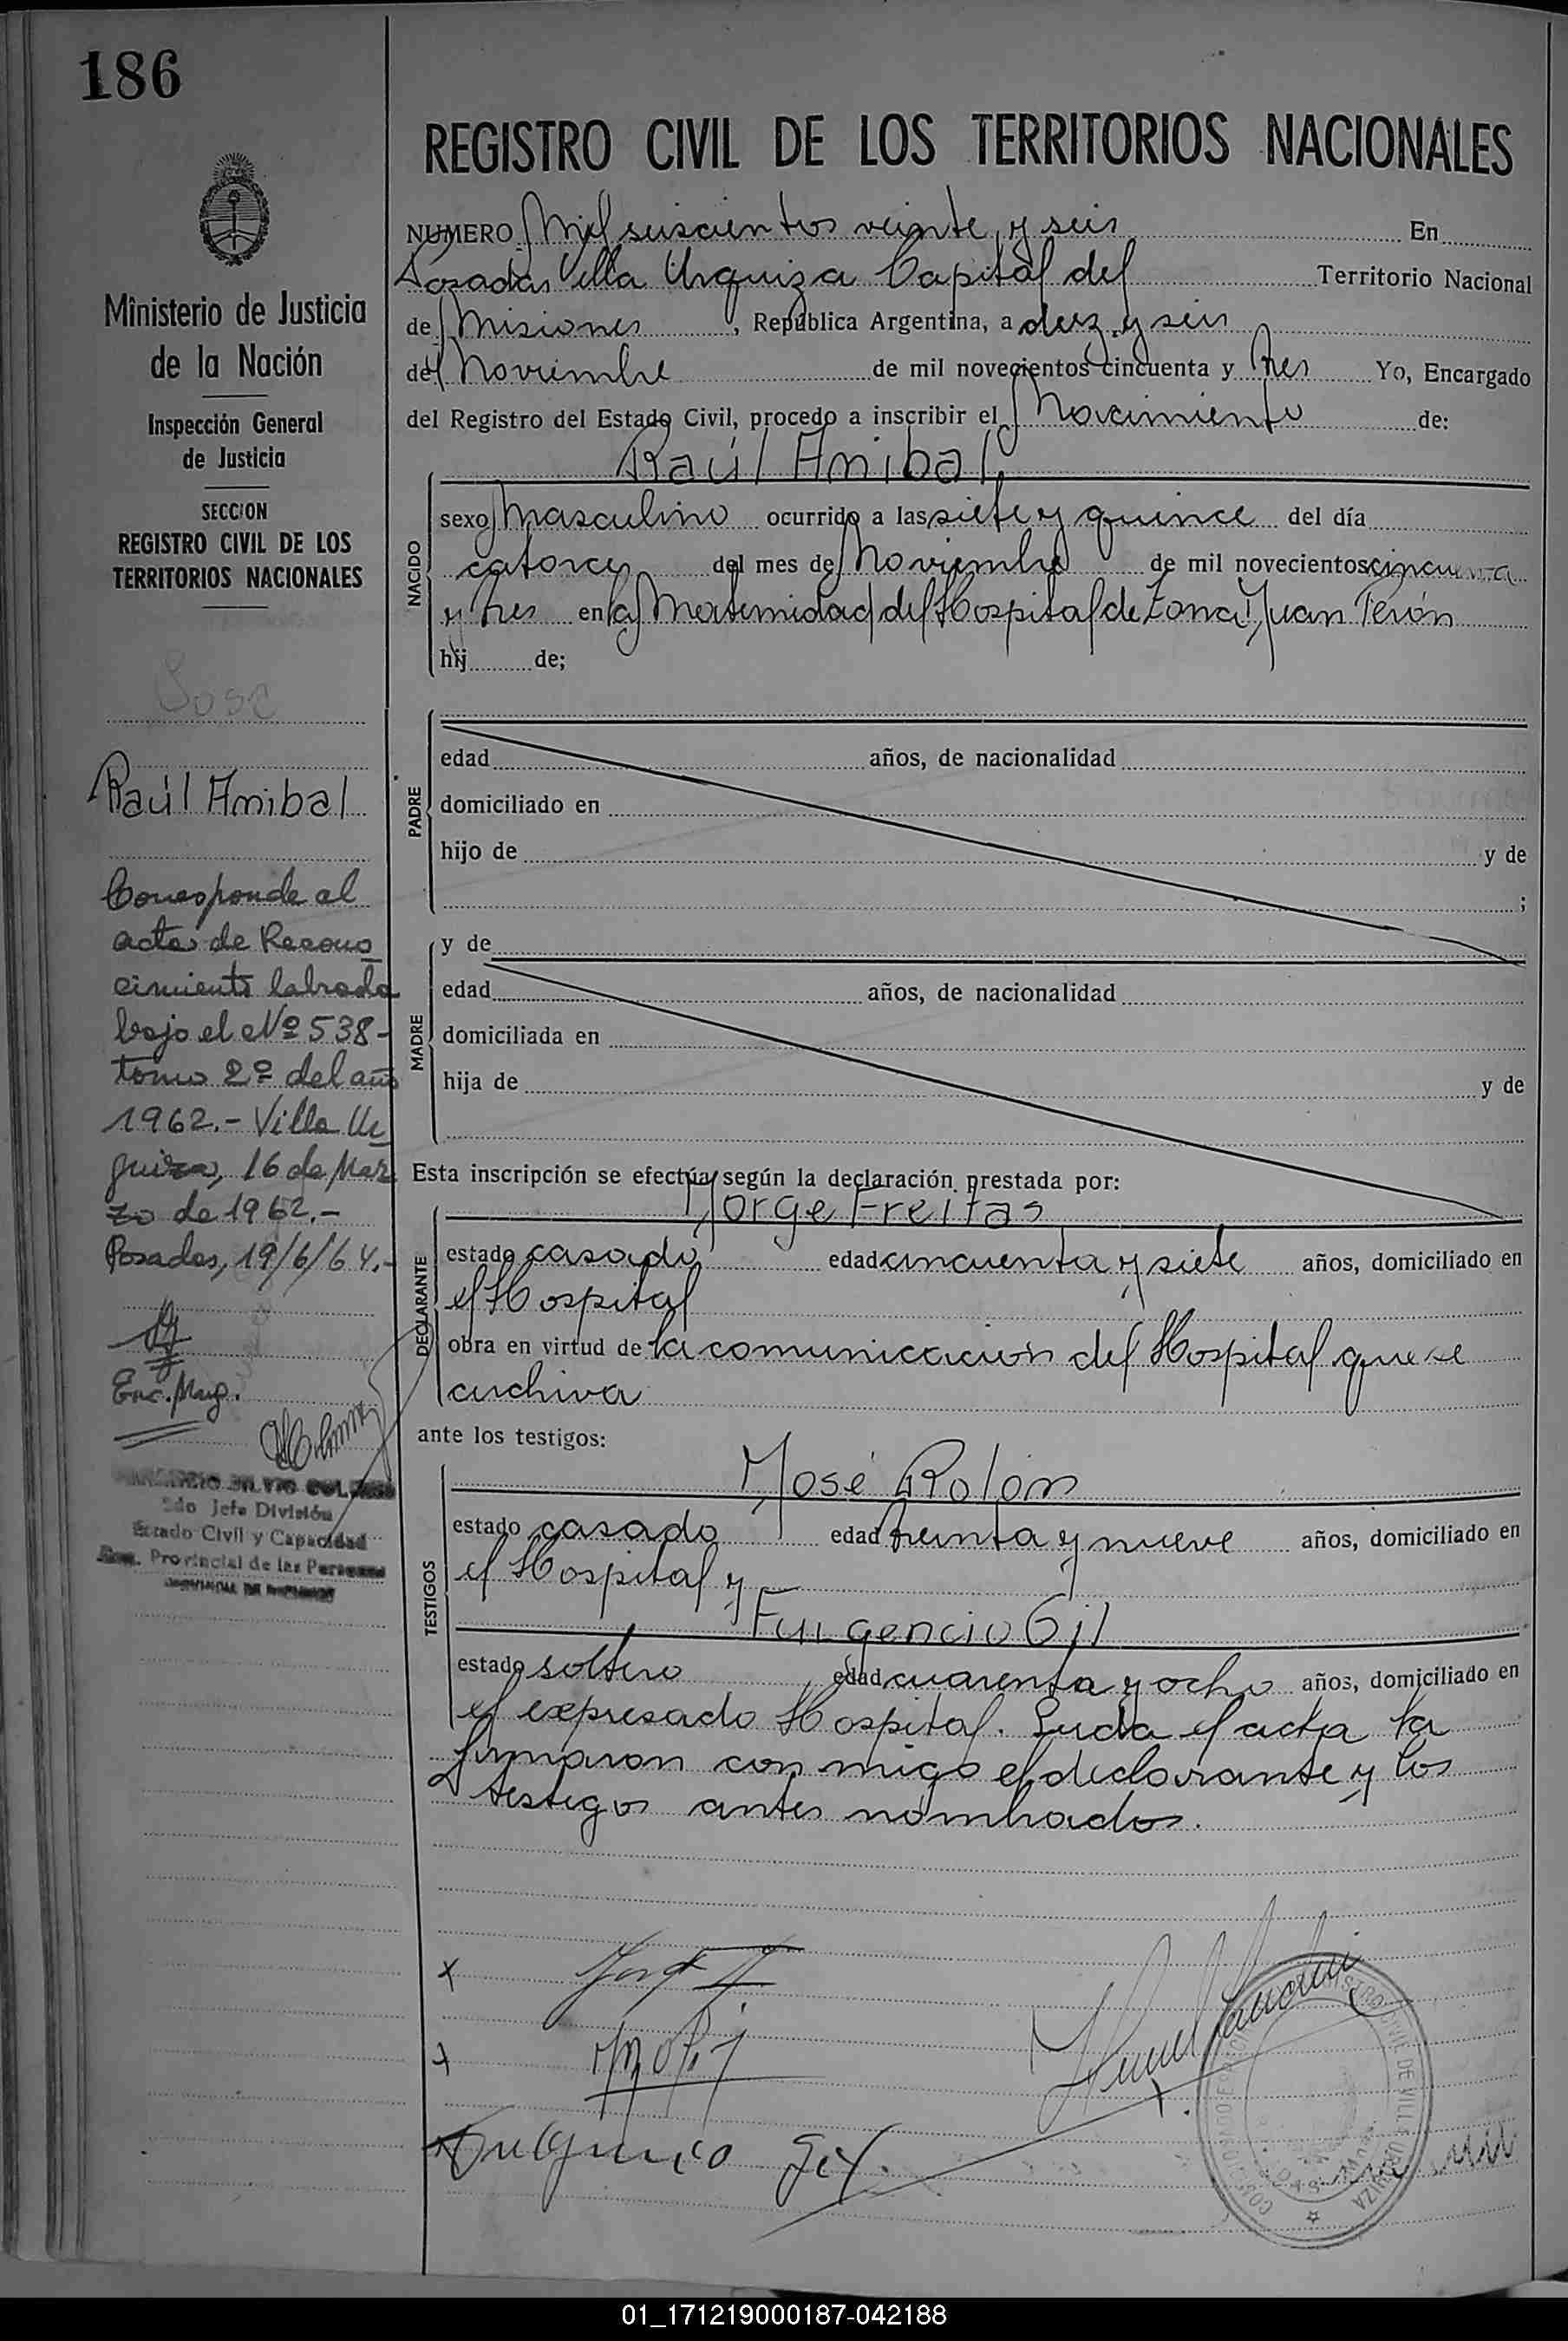 186
REGISTRO CIVIL DE LOS TERRITORIOS NACIONALES
Ministerio de Justicia
de la Nación
Inspección General
de Justicia
SECCION
REGISTRO CIVIL DE LOS
TERRITORIOS NACIONALES
Sosa
Raúl Anibal
Corresponde al
acta de Recono
cimiento labrada
bajo el Nº 538-
tomo 2º del año
1962.- Villa Ur
quiza, 16 de Mar
zo de 1962.-
Posadas, 19/6/64.-
Enc. Marg.
2do Jefe División
Estado Civil y Capacidad
Provincial de las Personas
NUMERO Mil seiscientos veinte y seis En
Posadas Villa Urquiza Capital del Territorio Nacional
de Misiones, República Argentina, a diez y seis
de Noviembre de mil novecientos cincuenta y tres Yo, Encargado
del Registro del Estado Civil, procedo a inscribir el Nacimiento de:
Raúl Anibal
NACIDO
sexo masculino ocurrido a las siete y quince del día
catorce del mes de Noviembre de mil novecientos cincuenta
y tres en la Maternidad del Hospital de Zona Juan Perón
hij de;
PADRE
edad años, de nacionalidad
domiciliado en
hijo de y de
;
MADRE
y de
edad años, de nacionalidad
domiciliada en
hija de y de
Esta inscripción se efectúa según la declaración prestada por:
Jorge Freitas
DECLARANTE
estado casado edad cincuenta y siete años, domiciliado en
el Hospital
obra en virtud de la comunicacion del Hospital que se
archiva
ante los testigos:
José Rolón
TESTIGOS
estado casado edad treinta y nueve años, domiciliado en
el Hospital y
Fulgencio Gil
estado soltero edad cuarenta y ocho años, domiciliado en
el expresado Hospital. Leida el acta la
firmaron con migo el declarante y los
testigos antes nombrados.
x
x
Fulgencio Gil
REGISTRO CIVIL DE VILLA URQUIZA
01_171219000187-042188